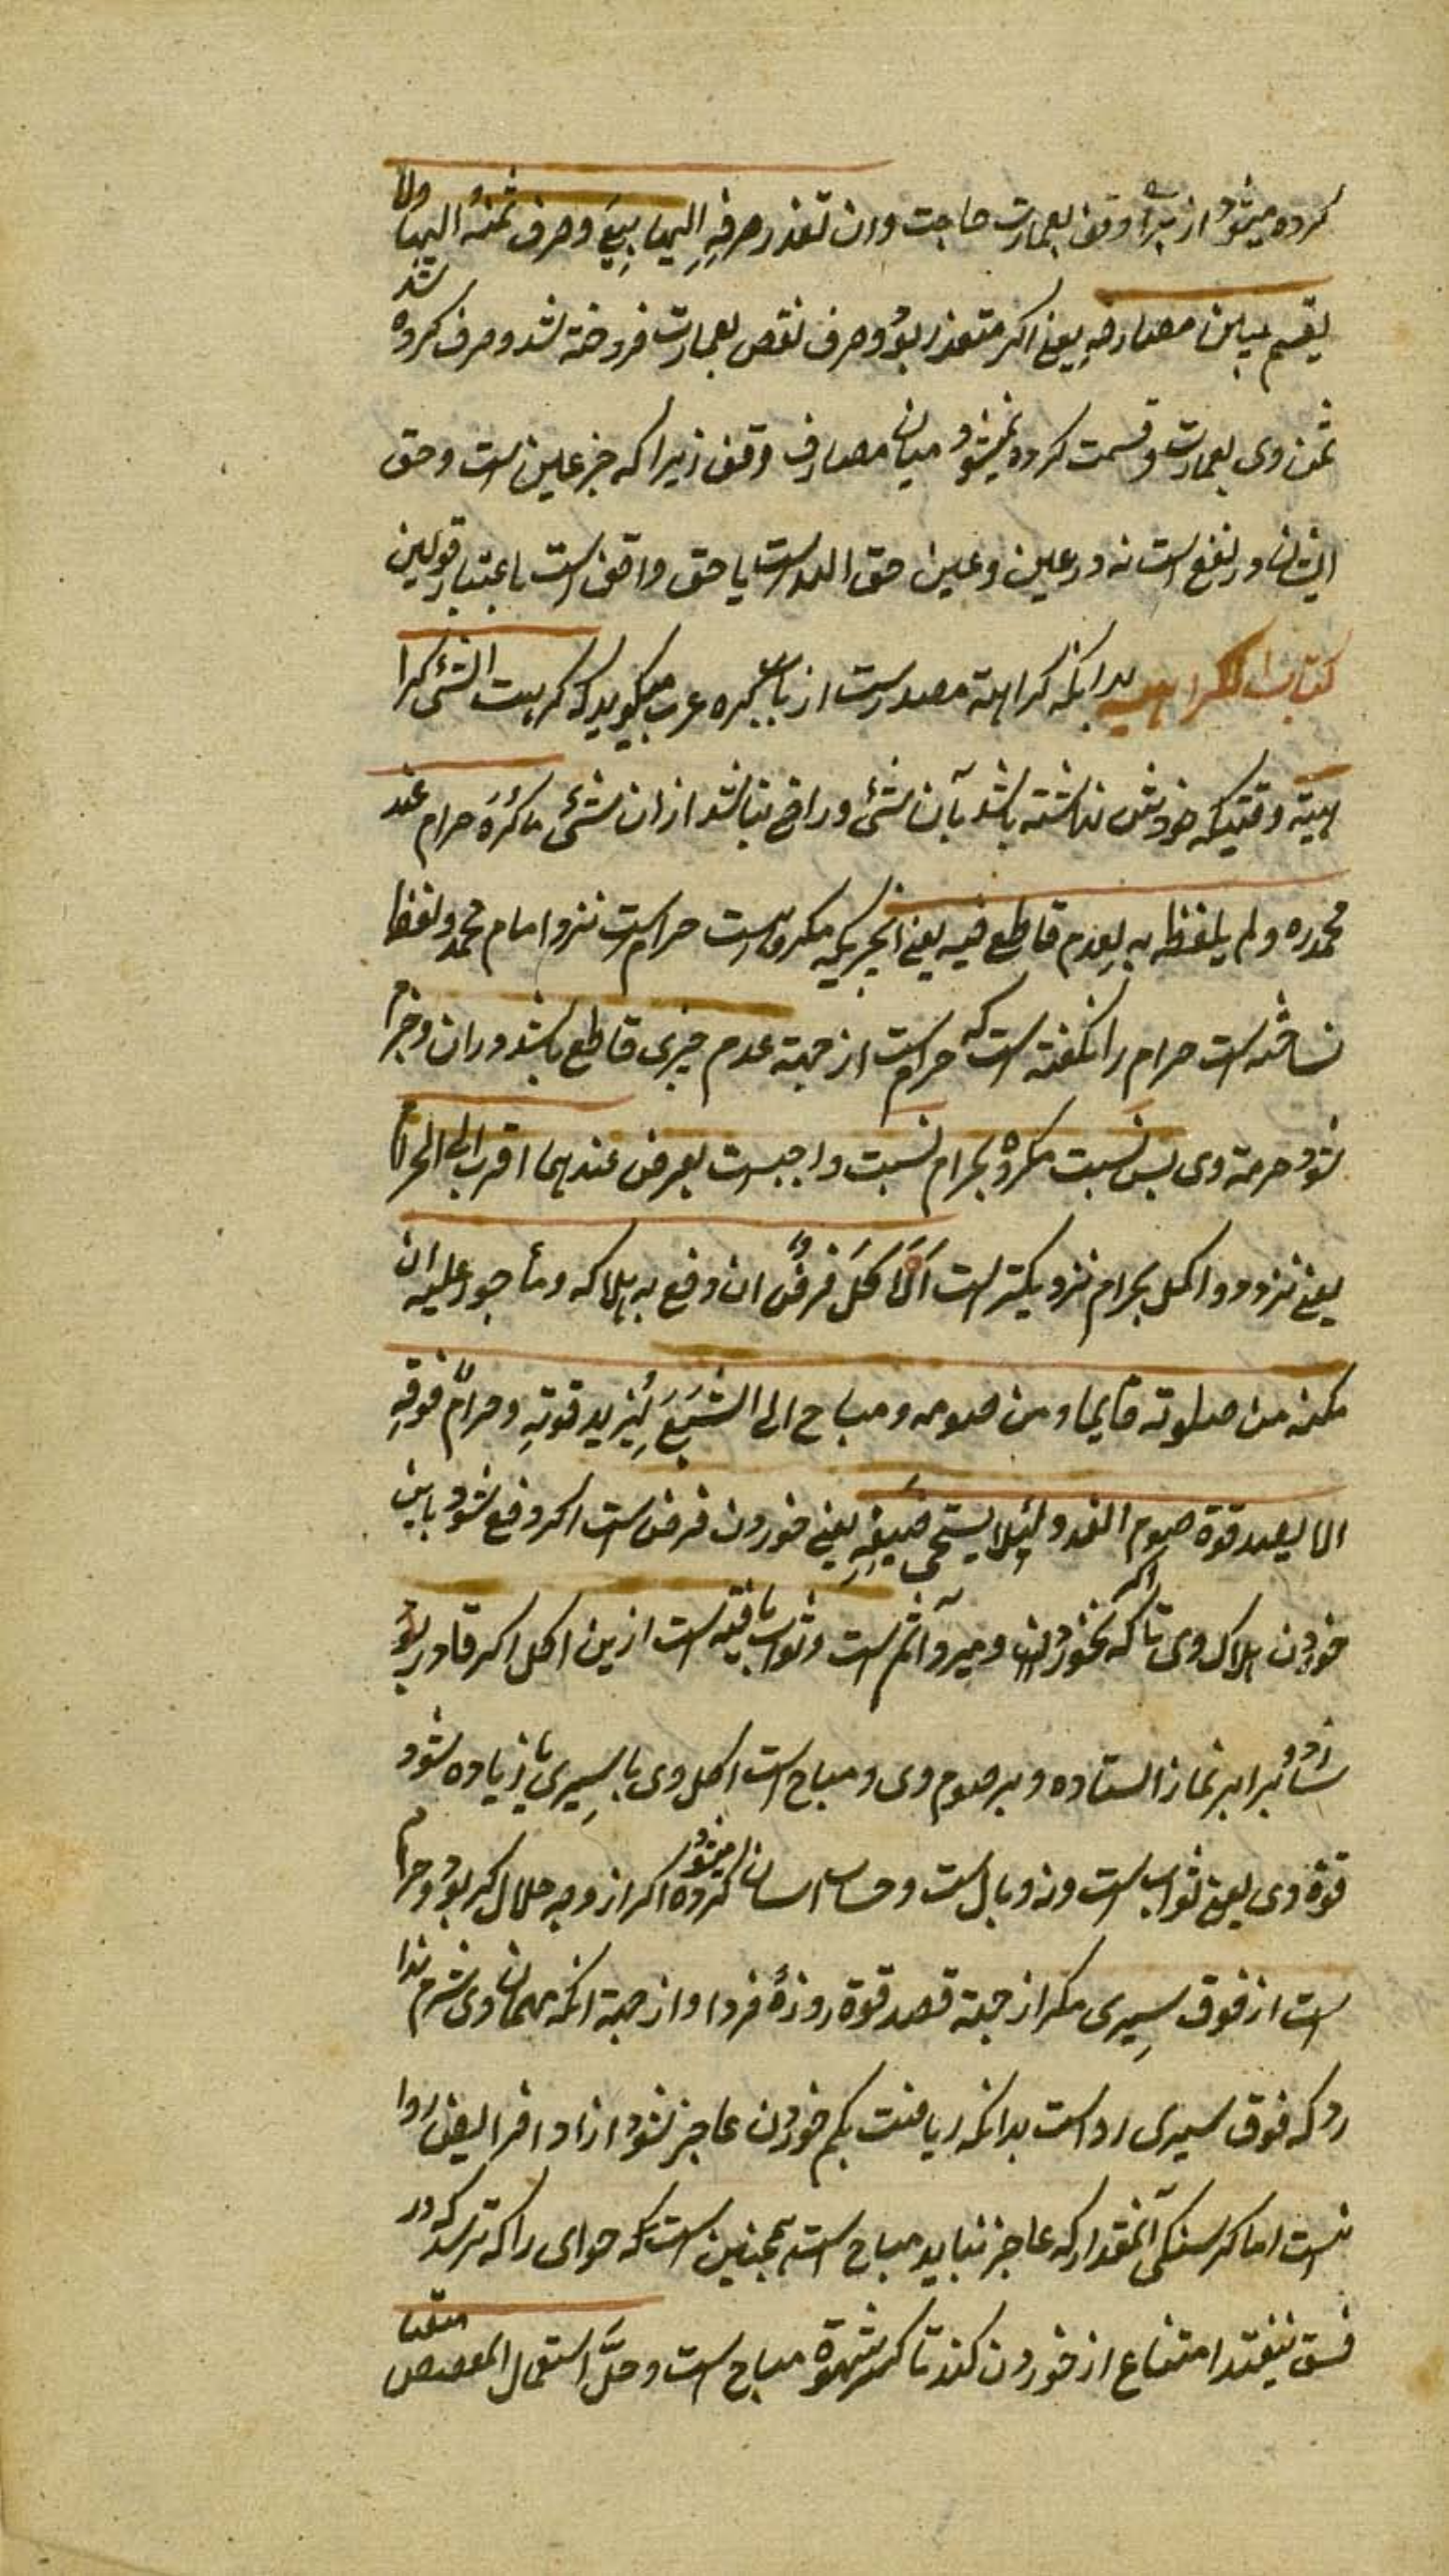 کرده میشود از برای وقف بعمارت حاجت وان تعذر صرفه الیها بیع وصرف ثمنه الیها ولا
یقسم بین مصارفه یعنی اکر متعذر بود صرف نقض بعمارت فروخته شد وصرف کرده شد
ثمن وی بعمارت وقسمت کرده نمیشود میان مصارف وقف زیرا که جزء عین است وحق
ایشان در نفع است نه در عین وعین حق الله است یا حق واقف است باعتبار قولین
کتاب الکراهیه بدانکه کراهة مصدرست از باب کره عرب میکوید که کرهت الشئ کرا
هیة وقتیکه خواهش نداشته باشد بآن شئ وراضی نباشد ازان شئ ماکره حرام عند
محمد ره ولم یلفظ به لعدم قاطع فیه یعنی انچیزیکه مکروهست حرام است نزد امام محمد ولفظ
نساخته است حرام را نکفته است که حرام است از جهة عدم چیزی قاطع باشد دران وجزم
شود حرمة وی پس نسبت مکروه بحرام نسبت واجبست بفرض عندهما اقرب الی الحرام
یعنی نزد دو اکمل بحرام نزدیکتر است الاکل فرض ان دفع به هلاکه ومأجور علیه ان
مکنه من صلوته قایما ومن صومه ومباح الی الشبع لیزید قوته وحرام فوقه
الا لقصد قوة صوم الغد ولئلا یستحی ضیفه یعنی خوردن فرض است اکر دفع شود باین
خوردن هلاک وی تا که اکر نخورد ومیرد آثم است وثواب یافته است ازین اکل اکر قادر بود
برابر نماز استاده وبر صوم وی ومباح است اکل وی تا سیری تا زیاده شود
قوة وی یعنی نه ثواب است ونه وبال است وحساب اسان کرده میشود اکر از وجه حلال اکر بود وحرام
است از فوق سیری مکر از جهة قصد قوة روزۀ فردا واز جهة انکه مهمان وی شرم ندا
رد که فوق سیری رواست بدانکه ریاضت بکم خوردن عاجز شود از اداء فرایض روا
نیست اما کرسنکی آنمقدار که عاجز نباید مباح است همچنین است که جوانی را که ترسد که در
فسق نیفتد امتناع از خوردن کند تا کسر شهوة مباح است وحل استعمال المفضض متقیا